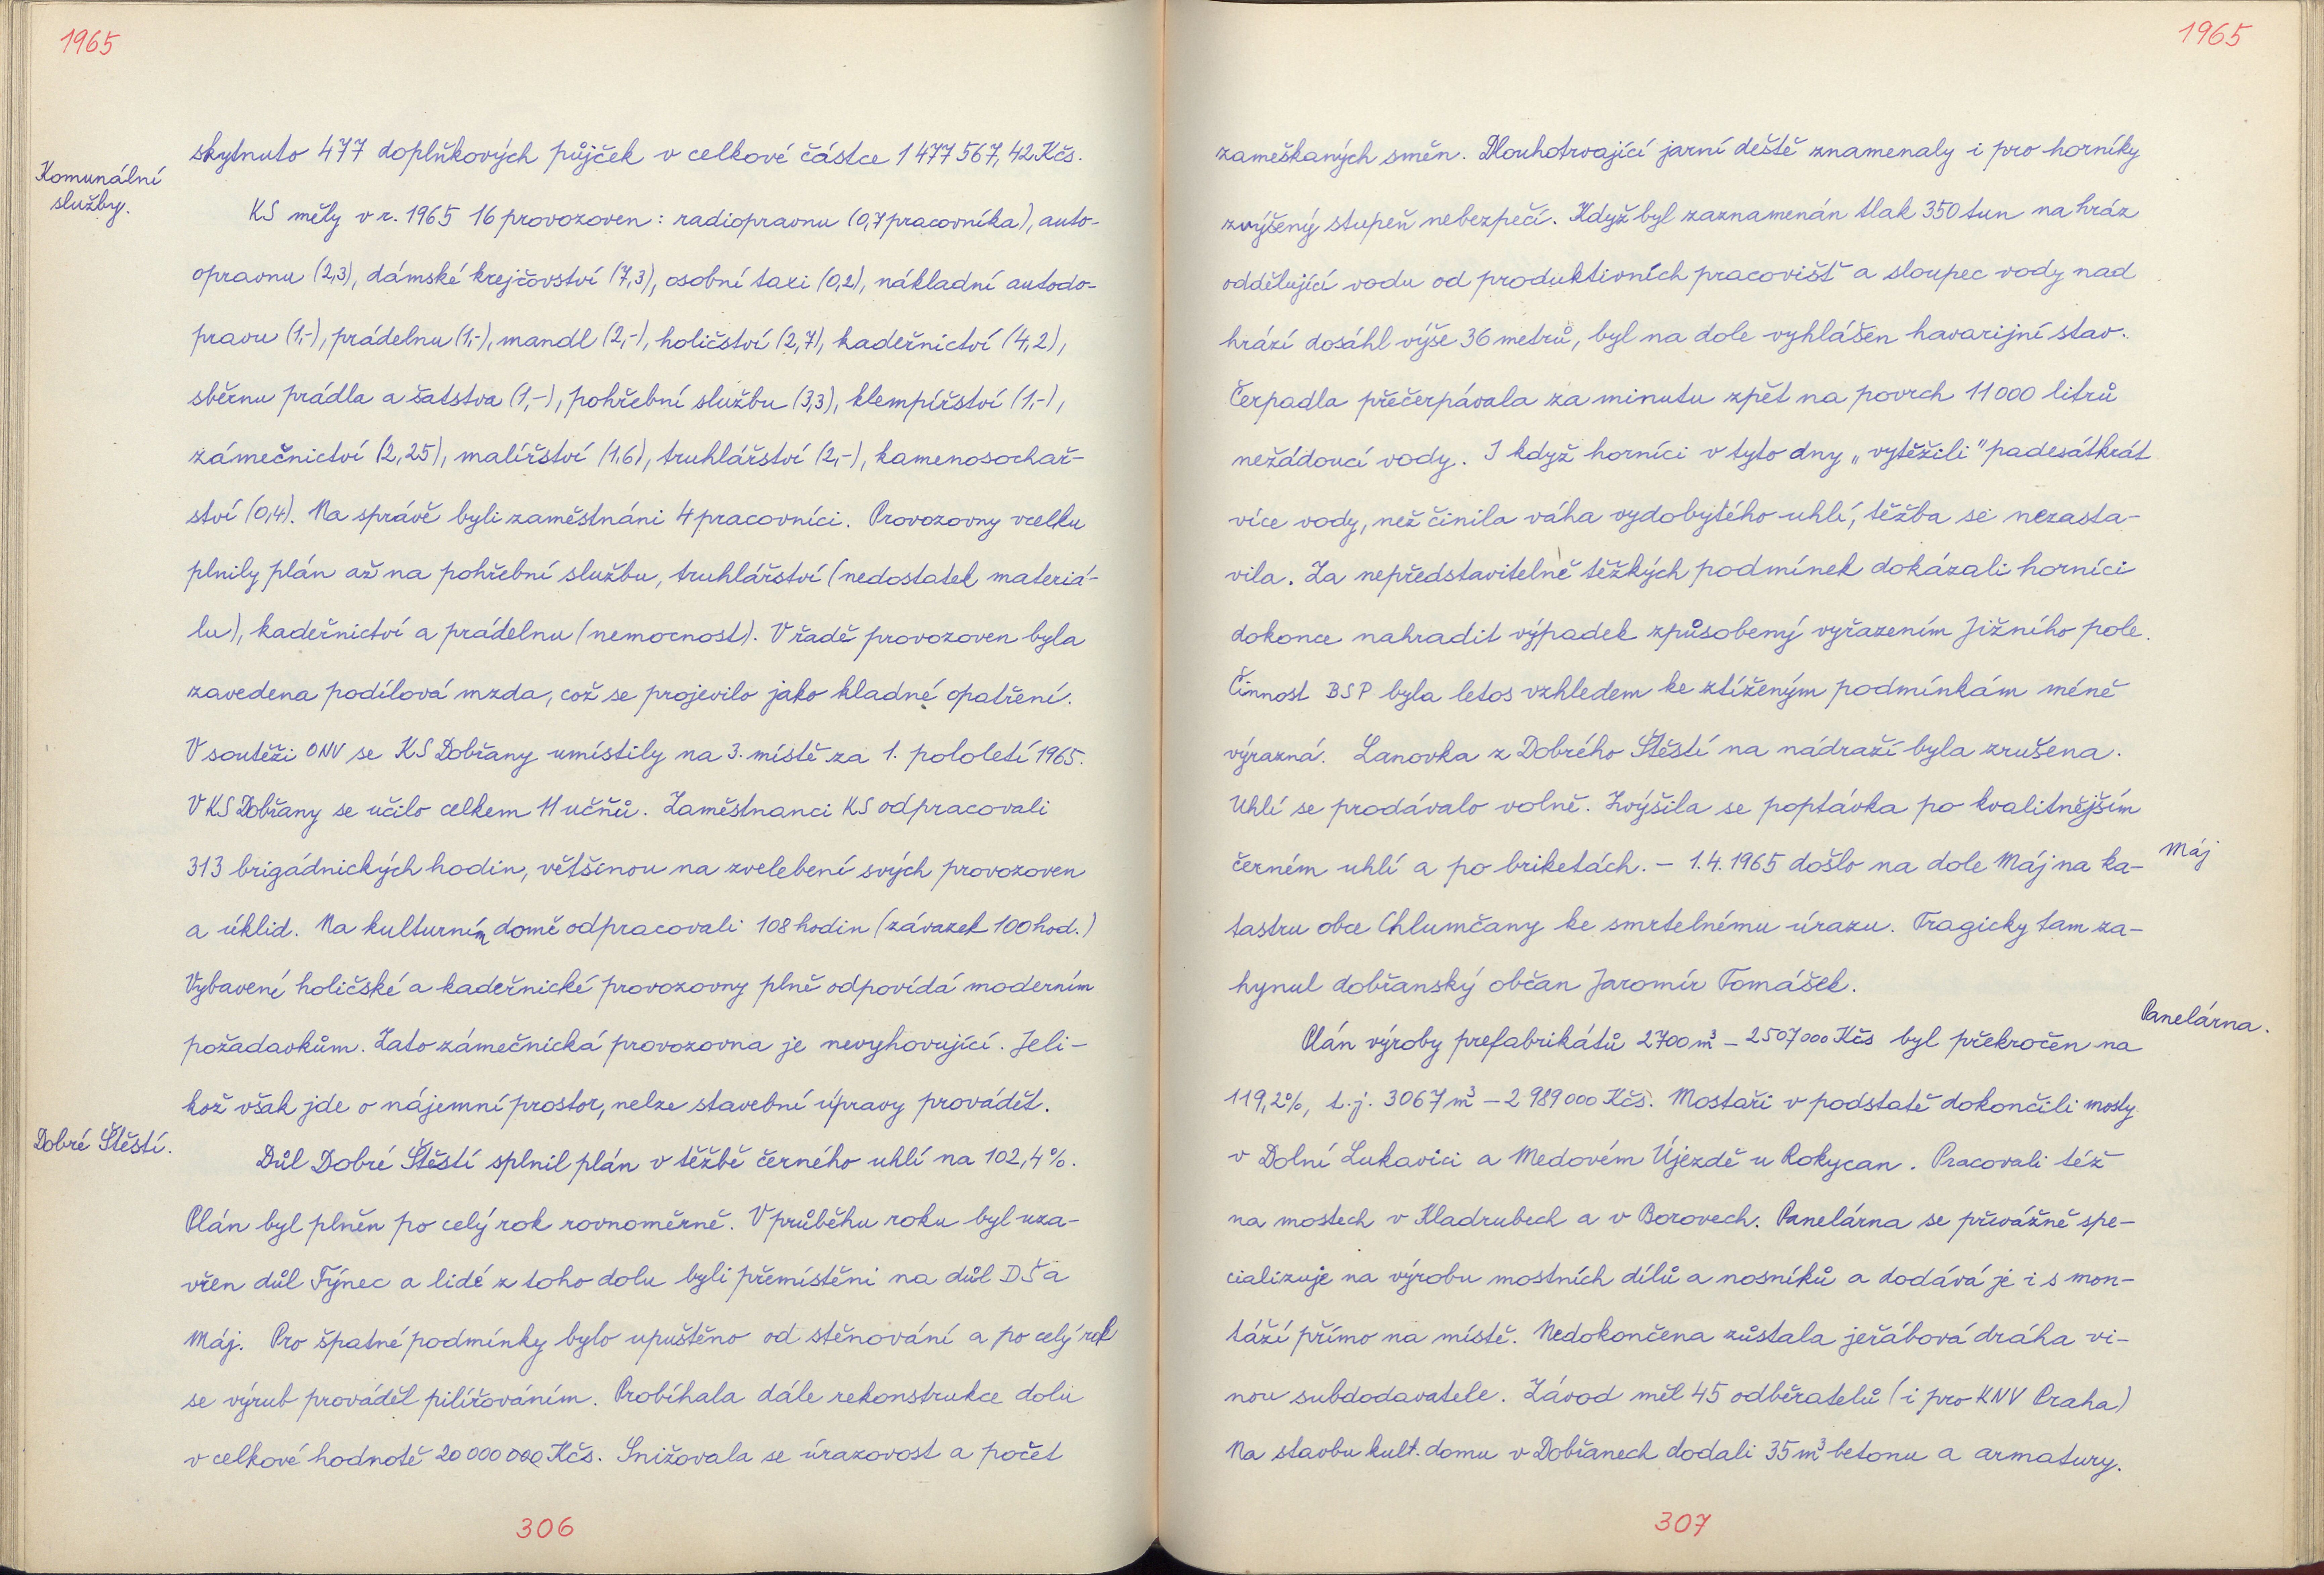 1965
Komunální
služby.
skytnuto 477 doplňkových půjček v celkové částce 1 477 567, 42 Kčs.
KS měly v r. 1965 16 provozoven: radiopravnu (0,7 pracovníka), auto-
opravnu (2,3), dámské krejčovství (7,3), osobní taxi (0,2), nákladní autodo-
pravu (1,-), prádelnu (1,-), mandl (2,-), holičství (2,7), kadeřnictví (4,2),
sběrnu prádla a šatstva (1,-), pohřební službu (3,3), klempířství (1,-),
zámečnictví (2,25), malířství (1,6), truhlářství (2,-), kamenosochař-
ství (0,4). Na správě byli zaměstnáni 4 pracovníci. Provozovny vcelku
plnily plán až na pohřební službu, truhlářství (nedostatek materiá-
lu), kadeřnictví a prádelnu (nemocnost). V řadě provozoven byla
zavedena podílová mzda, což se projevilo jako kladné opatření.
V soutěži ONV se KS Dobřany umístily na 3. místě za 1. pololetí 1965.
V KS Dobřany se učilo celkem 11 učňů. Zaměstnanci KS odpracovali
313 brigádnických hodin, většinou na zvelebení svých provozoven
a úklid. Na kulturním domě odpracovali 108 hodin (závazek 100 hod.)
Vybavení holičské a kadeřnické provozovny plně odpovídá moderním
požadavkům. Zato zámečnická provozovna je nevyhovující. Jeli-
kož však jde o nájemní prostor, nelze stavební úpravy provádět.
Dobré Štěstí.
Důl Dobré Štěstí splnil plán v těžbě černého uhlí na 102,4%.
Plán byl plněn po celý rok rovnoměrně. V průběhu roku byl uza-
vřen důl Týnec a lidé z toho dolu byli přemístěni na důl DŠ a
Máj. Pro špatné podmínky bylo upuštěno od stěnování a po celý rok
se výrub prováděl pilířováním. Probíhala dále rekonstrukce dolu
v celkové hodnotě 20 000 000 Kčs. Snižovala se úrazovost a počet
306
1965
zameškaných směn. Dlouhotrvající jarní deště znamenaly i pro horníky
zvýšený stupeň nebezpečí. Když byl zaznamenán tlak 350 tun na hráz
oddělující vodu od produktivních pracovišť a sloupec vody nad
hrází dosáhl výše 36 metrů, byl na dole vyhlášen havarijní stav.
Čerpadla přečerpávala za minutu zpět na povrch 11 000 litrů
nežádoucí vody. I když horníci v tyto dny „vytěžili" padesátkrát
více vody, než činila váha vydobytého uhlí, těžba se nezasta-
vila. Za nepředstavitelně těžkých podmínek dokázali horníci
dokonce nahradit výpadek způsobený vyřazením Jižního pole.
Činnost BSP byla letos vzhledem ke ztíženým podmínkám méně
výrazná. Lanovka z Dobrého Štěstí na nádraží byla zrušena.
Uhlí se prodávalo volně. Zvýšila se poptávka po kvalitnějším
černém uhlí a po briketách. - 1.4.1965 došlo na dole Máj na ka-
Máj
tastru obce Chlumčany ke smrtelnému úrazu. Tragicky tam za-
hynul dobřanský občan Jaromír Tomášek.
Panelárna.
Plán výroby prefabrikátů 2700 m³ - 2507 000 Kčs byl překročen na
119,2%, t.j. 3067 m³ - 2 989 000 Kčs. Mostaři v podstatě dokončili mosty
v Dolní Lukavici a Medovém Újezdě u Rokycan. Pracovali též
na mostech v Kladrubech a v Borovech. Panelárna se převážně spe-
cializuje na výrobu mostních dílů a nosníků a dodává je i s mon-
táží přímo na místě. Nedokončena zůstala jeřábová dráha vi-
nou subdodavatele. Závod měl 45 odběratelů (i pro KNV Praha)
Na stavbu kult. domu v Dobřanech dodali 35 m³ betonu a armatury.
307